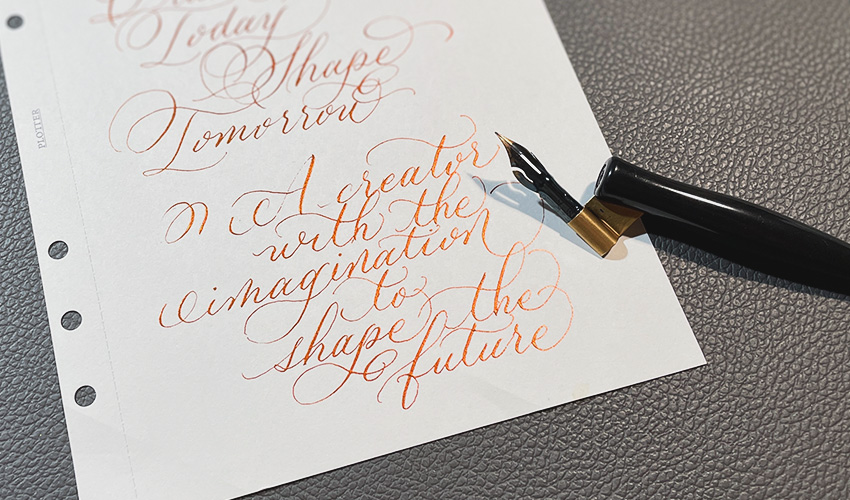 Today
Shape
Tomorrow
A creator
with the
imagination
to
shape the
future
PLOTTER